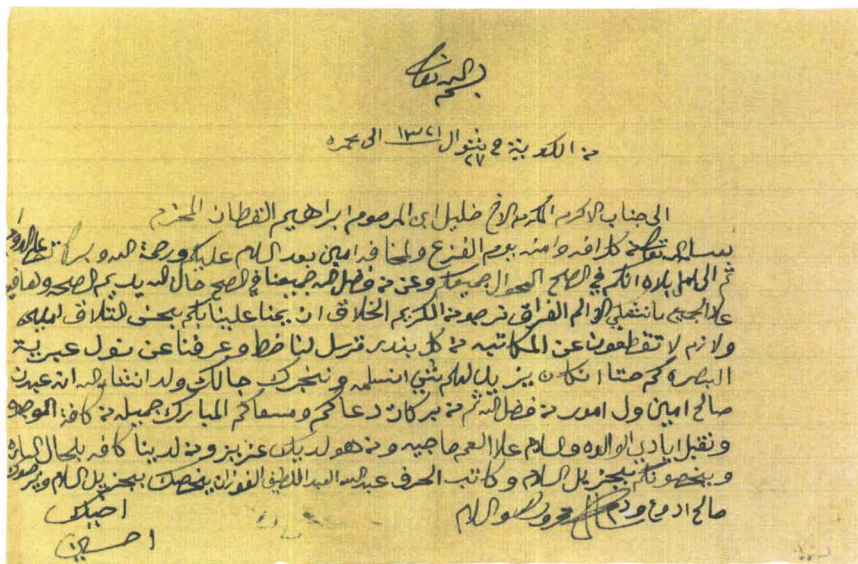 بسم الله تعالى
من الكويت في ٢٧ شوال ١٣٢١ الى محمره
الى جناب الاكرم المكرم الاخ خليل ابن المرحوم ابراهيم القطان المحترم
سلمه الله تعالى من كل افه وامنه يوم الفزع والمخافه امين بعد السلام عليكم ورحمة الله وبركاته على الدوام
ثم الى امل بلاه انكم في الصلح جميعكم وعن من فضل الله جميعنا في الصح حال الله يديم الصحه والعافيه
علا الجميع الا الم الفراق نرجو من الكريم الخلاق ان يمنا علينا بكم بحسن التلاق امين
ولازم لا تقطعون عن المكاتبه من كل بندر ترسل لنا خط وعرفنا عن نول عبرية
البصره كم حتا انكان يزيل لكم شي انسلمه ونخبرك جالك ولد انشاء الله ان عبدت
صالح امين ول امور من فضل الله ثم من بركات دعاكم ومسعاكم المبارك جميله من كافة الموجوه
ونقبل ايادي الوالوه والسلام علا العم ماجيه ومن هو لديك عزيز ومن لدينا كافه بلحال الساره
ويخصونكم بجزيل السلام وكاتب الحرف عبد الله العبد اللطيف الفوزان يخصك بجزيل السلام
صالح ادوع ودم سالم محروس والسلام
اخيك
احسين